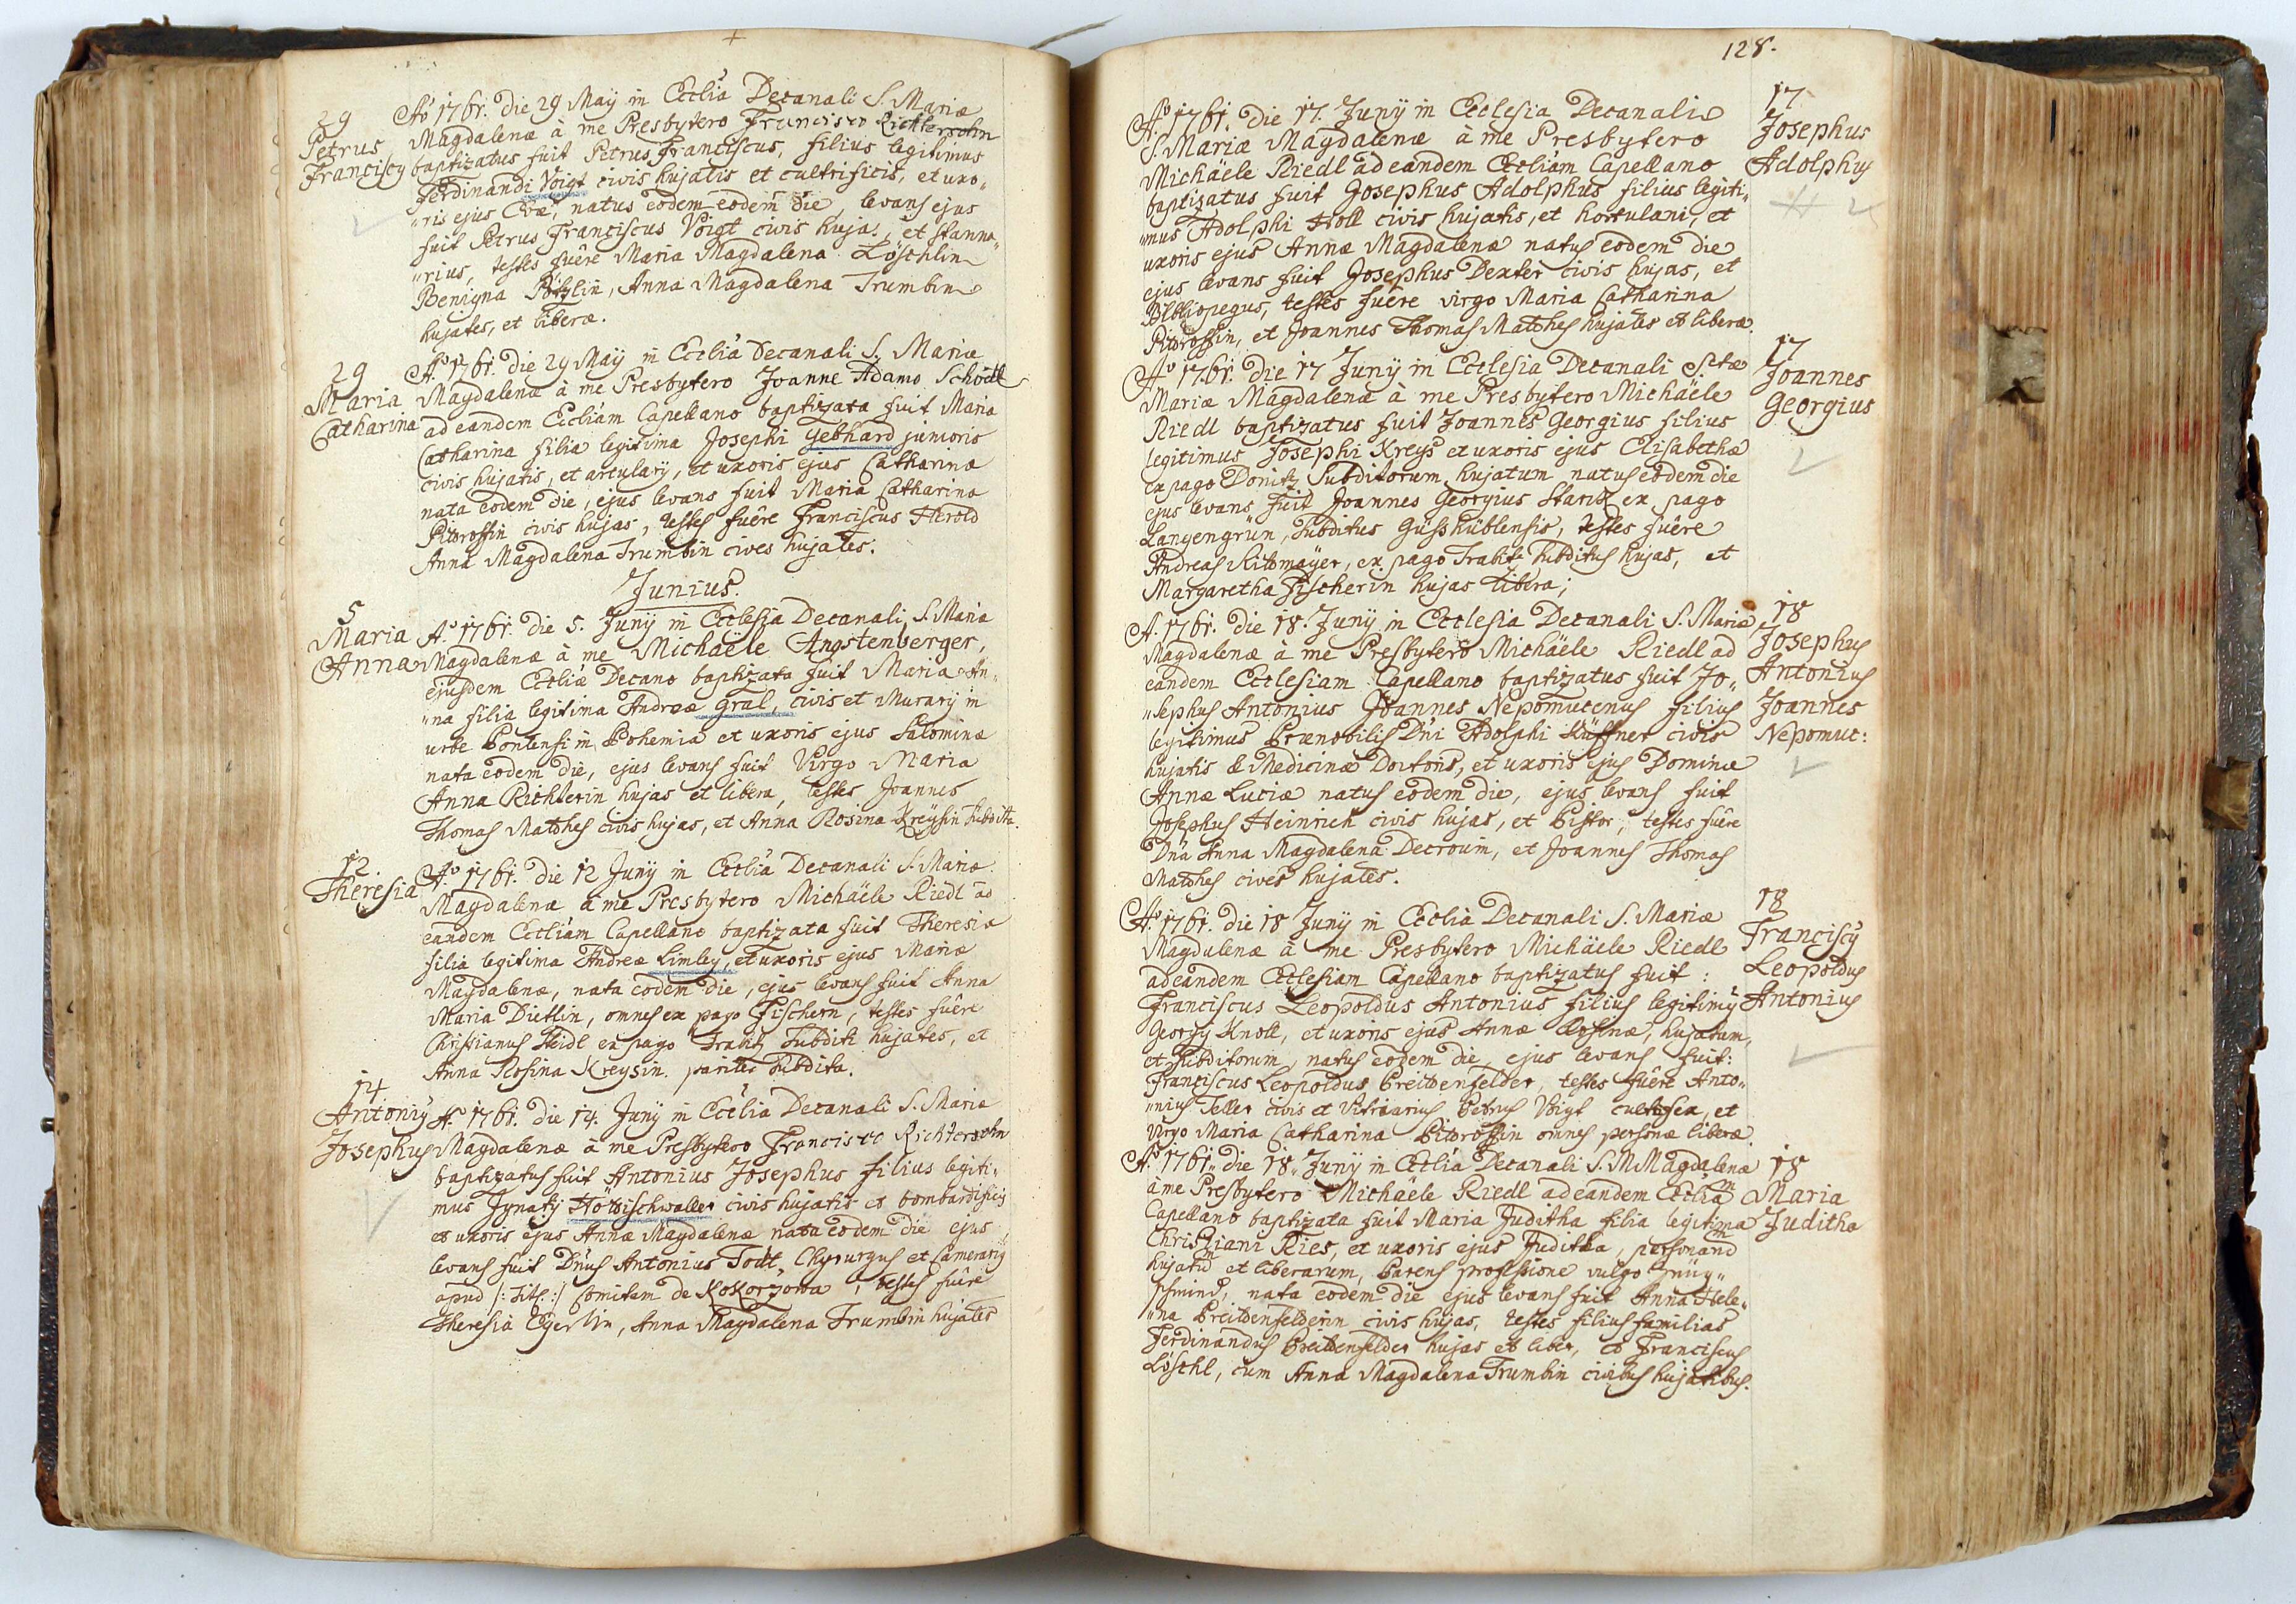 29
Petrus
Franciscy
Aõ 1761. Die 29 Maÿ in Ecclia Decanali S. Mariæ
Magdalenæ à me Presbytero Francisco Richtersohn
baptizatus fuit Petrus Franciscus, filius legitimus
Ferdinandi Voigt civis hujatis et cultrificis, et uxo„
„ris ejus Evæ, natus eodem eodem die, levans ejus
fuit Petrus Franciscus Voigt civis hujas, et stanna„
„rius, testes fuêre Maria Magdalena Löschlin
Benigna Pötzlin, Anna Magdalena Trumbin
hujates, et liberæ.
29
Maria
Catharina
Aõ 1761. die 29 Maÿ in Ecclia Decanali S. Mariæ
Magdalenæ à me Presbytero Joanne Adamo Schödl
ad eandem Eccliam Capellano baptizata fuit Maria
Catharina filia legitima Josephi Gebhard junioris
civis hujatis, et arcularÿ, et uxoris ejus Catharinæ
nata eodem die, ejus levans fuit Maria Catharina
Pitroffin civis hujas, testes fuêre Franciscus Herold
Anna Magdalena Trumbin cives hujates.
Junius.
5
Maria
Anna
A. 1761. die 5. Junÿ in Ecclesia Decanali S. Maria
Magdalenæ à me Michaële Angstenberger,
ejusdem Eccliæ Decano baptizata fuit Maria An„
„na filia legitima Andreæ Gral, civis et Murarÿ in
urbe Pontensi in Bohemia et uxoris ejus Salominæ
nata eodem die, ejus levans fuit Virgo Maria
Anna Richterin hujas et libera, testes Joannes
Thomas Matthes civis hujas, et Anna Rosina Kreÿsin subdita.
12.
Theresia
Aõ 1761. die 12 Junÿ in Ecclia Decanali S. Mariæ
Magdalenæ à me Presbytero Michäele Riedl ad
eandem Eccliam Capellano baptizata fuit Theresia
filia legitima Andreæ Limley, et uxoris ejus Mariæ
Magdalenæ, nata eodem die, ejus levans fuit Anna
Maria Dietlin, omnes ex pago Fischern, testes fuêre
Christianus Heidl ex pago Trahitz Subditi hujates, et
Anna Rosina Kreysin pariter Subdita.
14
Antoniy
Josephus
A. 1761. die 14. Junÿ in Ecclia Decanali S. Mariæ
Magdalenæ à me Presbytero Francisco Richtersohn
baptizatus fuit Antonius Josephus filius legiti„
mus Ignatÿ Höttischwaller civis hujatis et bombardificis
et uxoris ejus Annæ Magdalenæ nata eodem die ejus
levans fuit Dnus Antonius Todt, Chyrurgus et Camerariy
apud /: Titl: :/ Comitem de Kokorzowa, testes fuêre
Theresia Egerlin, Anna Magdalena Trumbin hujates
128.
17
Josephus
Adolphus
Aº 1761. die 17. Junÿ in Ecclesia Decanalis
S. Mariæ Magdalenæ à me Presbytero
Michäele Riedl ad eandem Eccliam Capellano
baptizatus fuit Josephus Adolphus filius legiti„
„mus Adolphi Holl civis hujatis, et hortulani, et
uxoris ejus Annæ Magdalenæ natus eodem die
ejus levans fuit Josephus Dexter civis hujas, et
Bibliopegus, testes fuêre virgo Maria Catharina
Pitroffin, et Joannes Thomas Matthes hujates et liberæ.
17
Joannes
Georgius
Aº 1761. die 17 Junÿ in Ecclesia Decanali S.ctæ
Mariæ Magdalenæ à me Presbytero Michäele
Riedl baptizatus fuit Joannes Georgius filius
legitimus Josephi Kreys et uxoris ejus Elisabethæ
ex pago Donitz Subditorum hujatum natus eodem die
ejus levans fuit Joannes Georgius Starck ex pago
Langengrün, Subditus Gusshüblensis, testes fuêre
Andreas Rittmaÿer, ex pago Trahitz subditus hujas, et
Margaretha Fischerin hujas libera;
18
Josephus
Antonius
Joannes
Nepomuc:
A. 1761. die 18. Junÿ in Ecclesia Decanali S. Mariæ
Magdalenæ à me Presbytero Michäele Riedl ad
eandem Ecclesiam Capellano baptizatus fuit Jo„
„sephus Antonius Joannes Nepomucenus filius
legitimus Prænobilis Dni Adolphi Küffner civis
hujatis & Medicinæ Doctoris, et uxoris ejus Dominæ
Annæ Luciæ natus eodem die, ejus levans fuit
Josephus Heinrich civis hujas, et Pistor, testes fuêre
Dna Anna Magdalena Decroum, et Joannes Thomas
Matthes cives hujates.
18
Franciscÿ
Leopoldus
Antonius
Aº 1761. die 18 Junÿ in Ecclia Decanali S. Mariæ
Magdalenæ à me Presbytero Michäele Riedl
ad eandem Ecclesiam Capellano baptizatus fuit:
Franciscus Leopoldus Antonius filius legitimÿ
Georgÿ Knoll, et uxoris ejus Annæ Rosinæ, hujatum,
et subditorum, natus eodem die, ejus levans fuit:
Franciscus Leopoldus Breitenfelder, testes fuêre Anto„
„nius Teller civis et Vitriarius Petrus Voigt cultrifex, et
Virgo Maria Catharina Pitroffin omnes personæ liberæ.
18
Maria
Juditha
Aº 1761. die 18. Junÿ in Ecclia Decanali S. M Magdalenæ
à me Presbytero Michäele Riedl ad eandem Eccliam
Capellano baptizata fuit Maria Juditha filia legitima
Christiani Ries, et uxoris ejus Juditha, personarum
hujatum et liberarum, Parens professione vulgo
nata eodem die ejus levans fuit Anna Hele„
„na Breitenfelderin civis hujas, testes filius familias
Ferdinandus Breitenfelder hujas et liber, et Franciscus
Löschl, cum Anna Magdalena Trumbin civibus hujatibus.